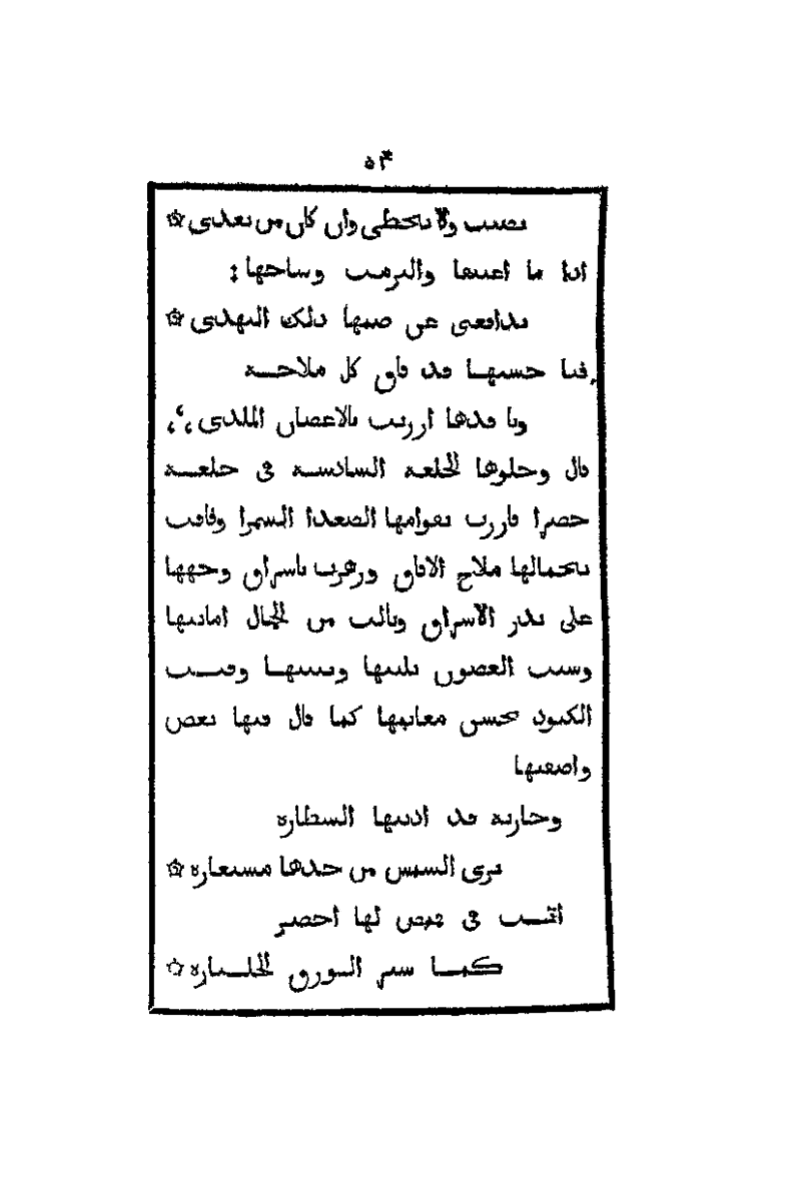 ٥٣
تصيب ولا تخطي وان كان من بعدي
اذا ما اعتنقها والتزمت وشاحها :
يدافعني عن ضمها ذلك النهدي
فيا حسنها قد فاق كل ملاحة
ويا قدها ازريت بالاغصان الملدي
قال وجلوها الخلعة السادسة في خلعة
خضرا فازرت بقوامها الصعدا السمرا وفاقت
بجمالها ملاح الافاق وزهرت باشراق وجهها
على بدر الاشراق ونالت من الجمال امانيها
وسبت الغصون بلينها وتثنيها وفتت
الكبود بحسن معانيها كما قال فيها بعض
واصفيها
وجارية قد ادبتها الشطارة
ترى الشمس من خدها مستعارة
اتت في قميص لها اخضر
كما ستر الورق الجلنارة